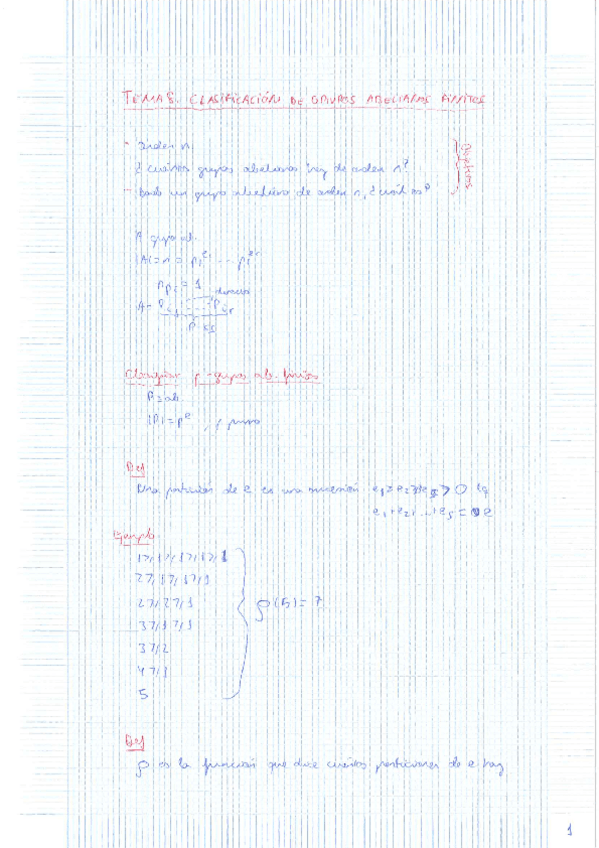 TEMA 5. CLASIFICACIÓN DE GRUPOS ABELIANOS FINITOS
- Orden n.
¿cuántos grupos abelianos hay de orden n?
- Dado un grupo abeliano de orden n, ¿cuál es?
A grupo ab.
|A| = n = p₁^e₁ ... 
= 1 directo
A =
Clasificar p-grupos ab. finitos
P = ab.
|P| = p^e , p primo
Def
Una partición de e es una sucesión e₁≥e₂≥...≥e_s > 0 tq
e₁+e₂+...+e_s = e
Ejemplo
1≥1≥1≥1≥1
2≥1≥1≥1
2≥2≥1
3≥1≥1
3≥2
4≥1
5
ρ(5) = 7
Def
ρ es la función que dice cuántas particiones de e hay
1